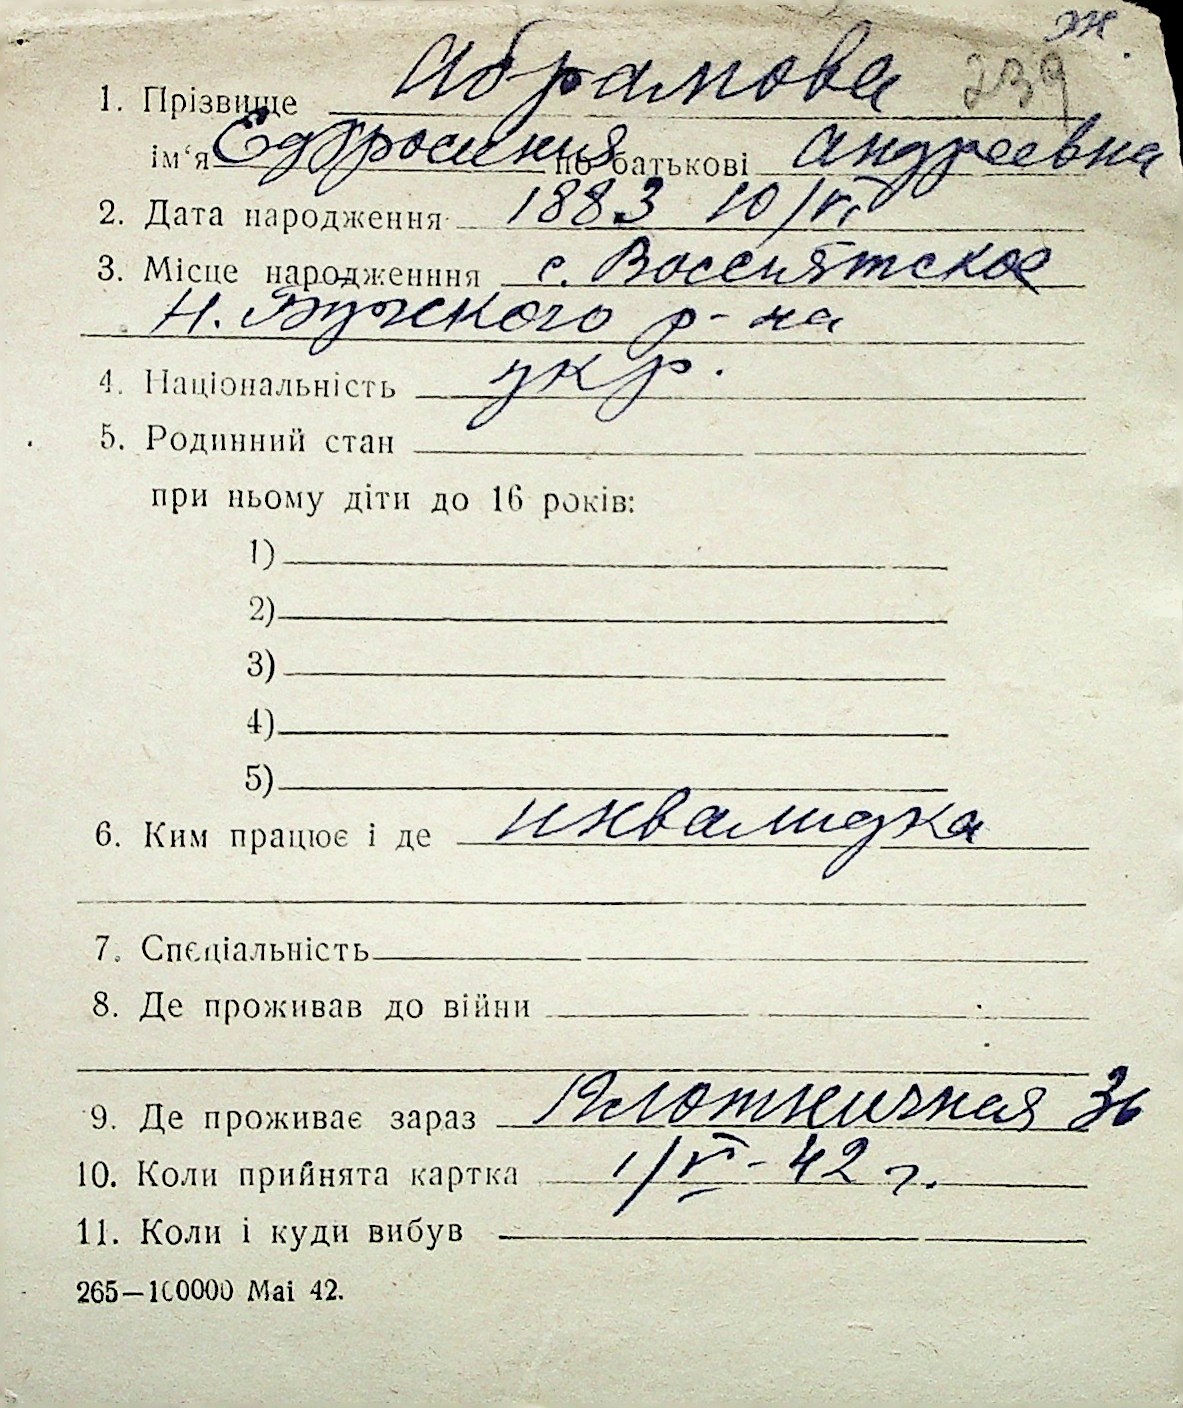 ж.
1. Прізвище Абрамова 239
ім‘я Едфросиния по батькові Андреевна
2. Дата народження 1883 10/VI
3. Місце народженння с. Восенятское
Н. Бужского р-на
4. Національність укр.
5. Родинний стан
при ньому діти до 16 років:
1)
2)
3)
4)
5)
6. Ким працює і де инвалидка
7. Спеціальність
8. Де проживав до війни
9. Де проживає зараз Плотничная 36
10. Коли прийнята картка 1/VI-42 г.
11. Коли і куди вибув
265—100000 Mai 42.